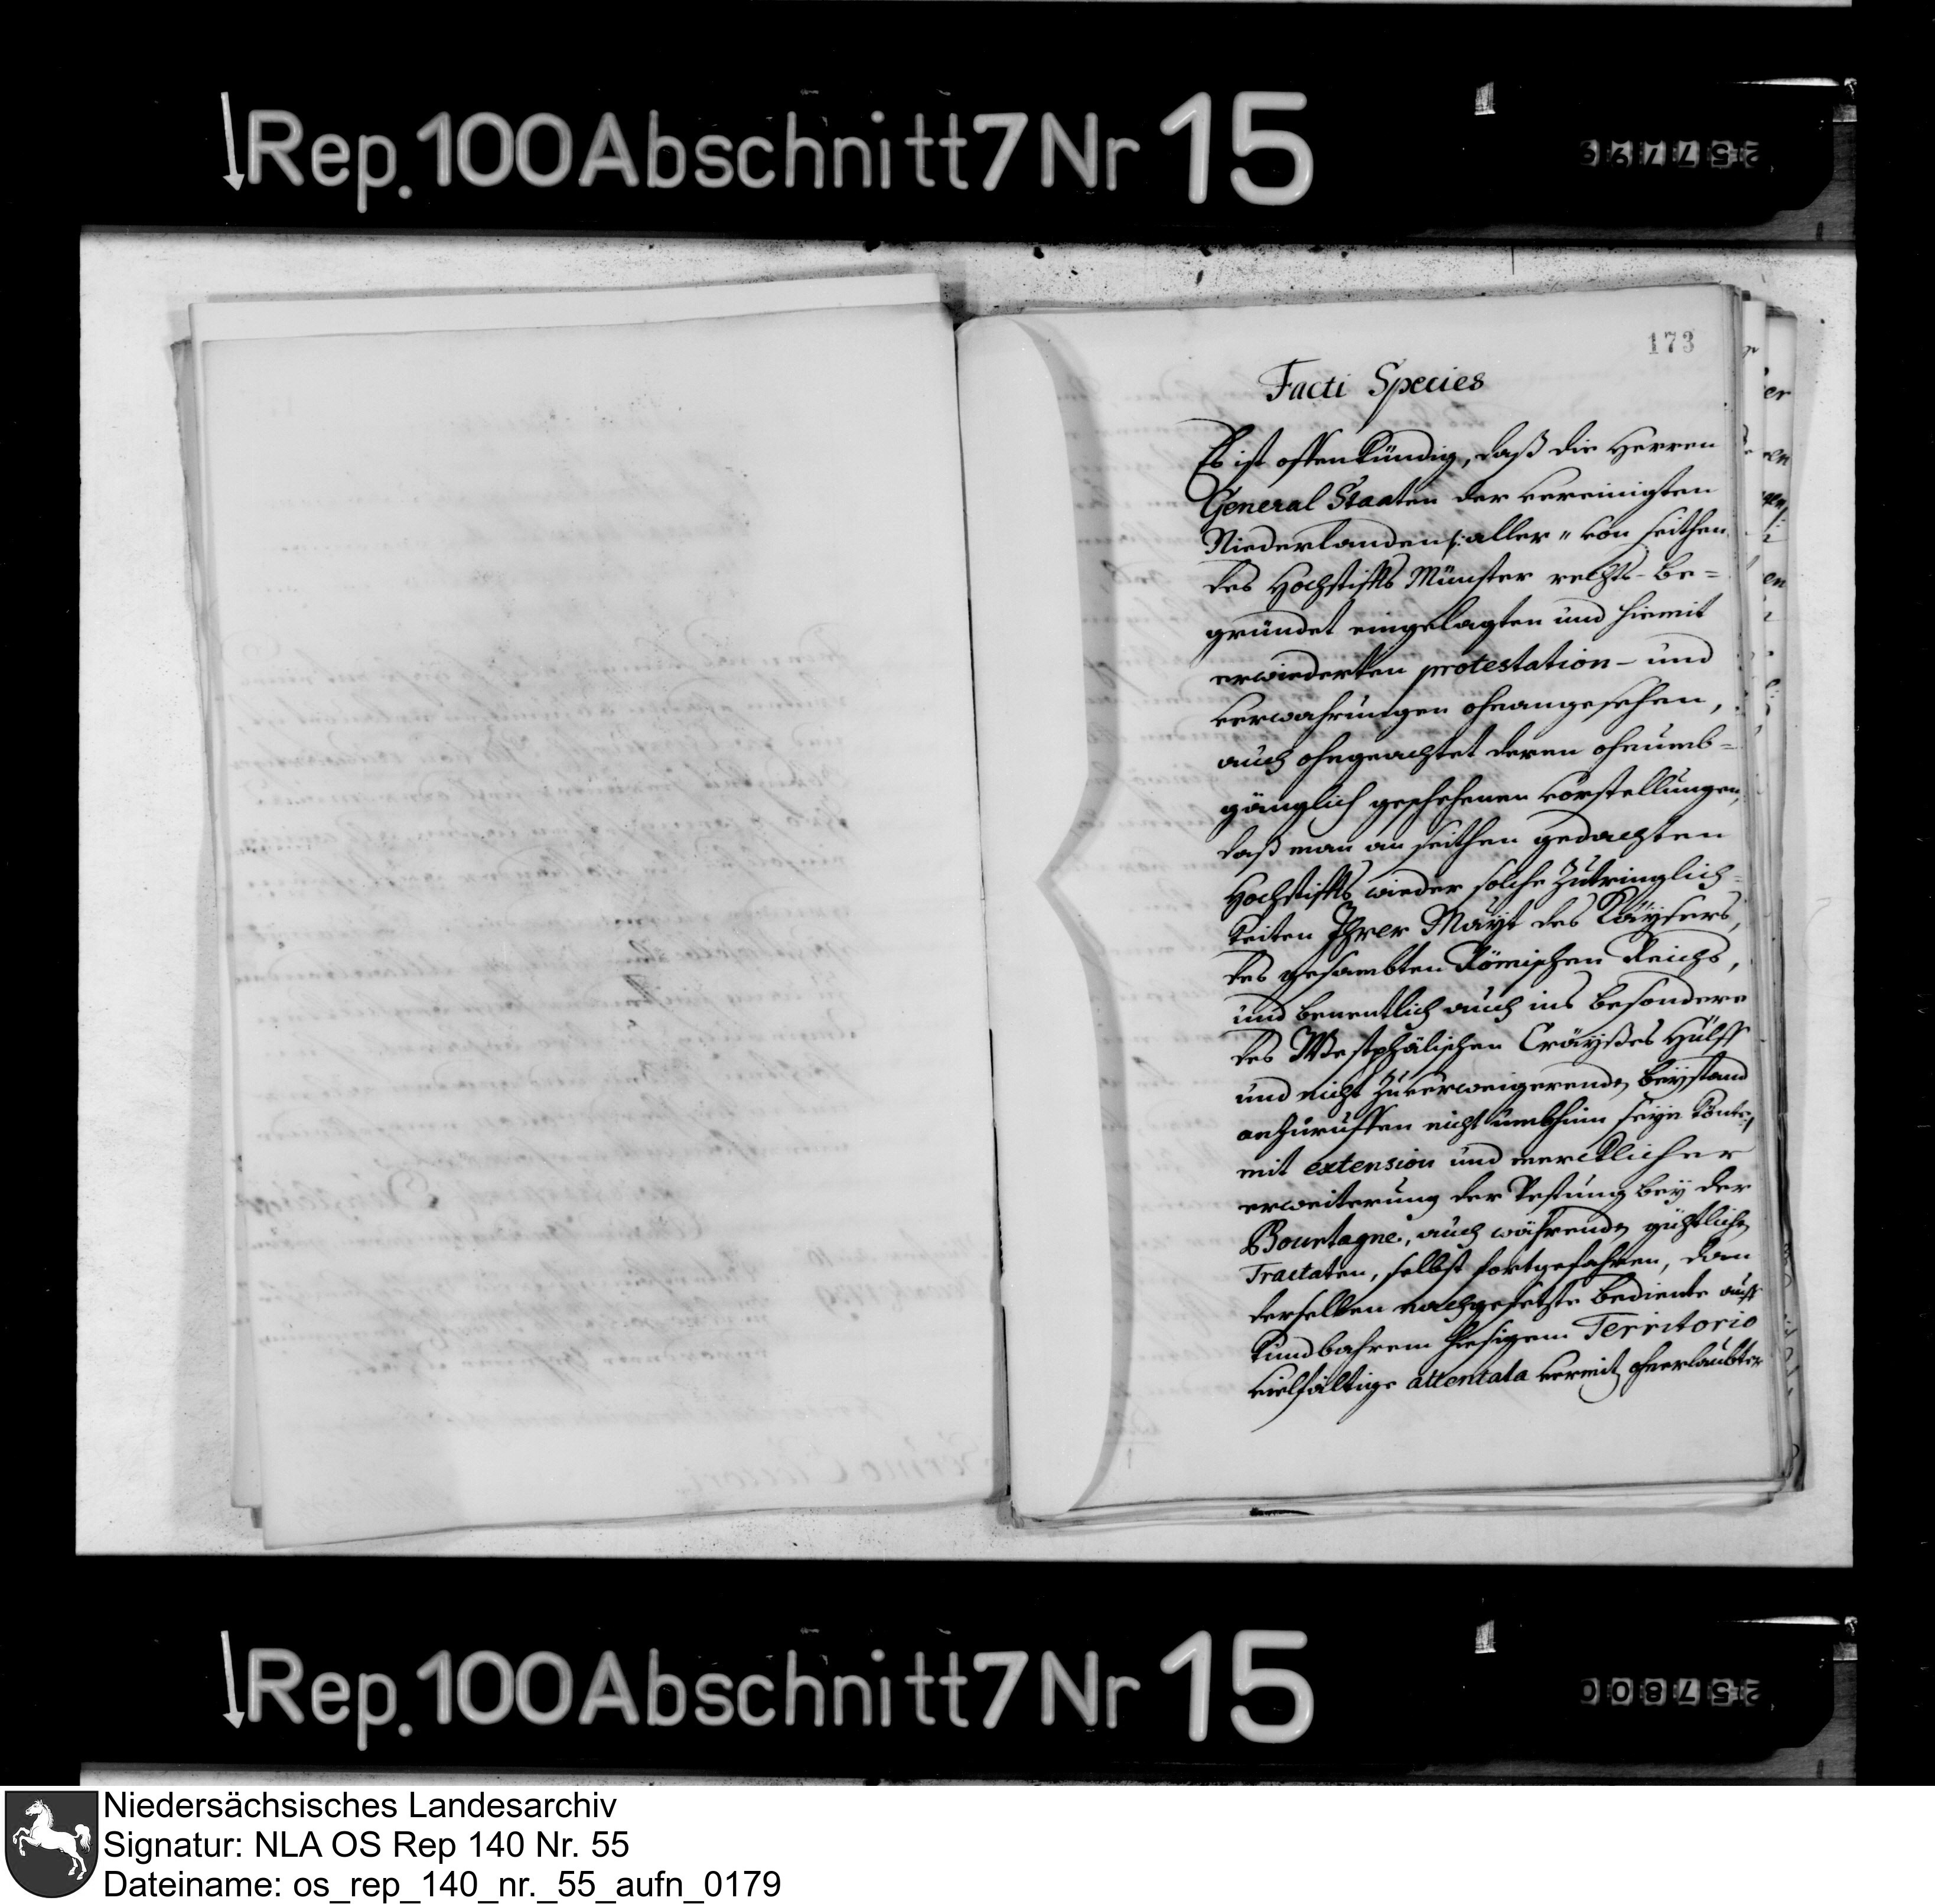 Rep. 100 Abschnitt 7 Nr 15
173
Facti Species
Es ist offenkündig, daß die Herren
General Staaten der vereinigten
Niederlanden /: aller " von seithen
des Hochstiffts Münster rechts-be=
gründet eingelagten und hiemit
erwiederten protestation- und
verwahrungen ohnangesehen,
auch ohngeachtet deren ohnumb=
gänglich geschehenen vorstellungen,
daß man an seithen gedachten
Hochstiffts wieder solche Zutringlich=
keiten Ihrer Mayt des Käysers,
des gesambten Römischen Reichs,
und benentlich auch ins besondere
des Westphälischen Cräyßes Hülff
und nicht zu verweigerenden beystand
anzuruffen nicht umbhin seyn könte,
mit extension und mercklicher
erweiterung der Vestung bey der
Bourtagne, auch währenden güthlichen
Tractaten, selbst fortgefahren, dan
derselben nachgesetzte bediente auff
kundbahrem hiesigem Territorio
vielfältige attentata vermit ohnerlaubter
Rep. 100 Abschnitt 7 Nr 15
257800
Niedersächsisches Landesarchiv
Signatur: NLA OS Rep 140 Nr. 55
Dateiname: os_rep_140_nr._55_aufn_0179